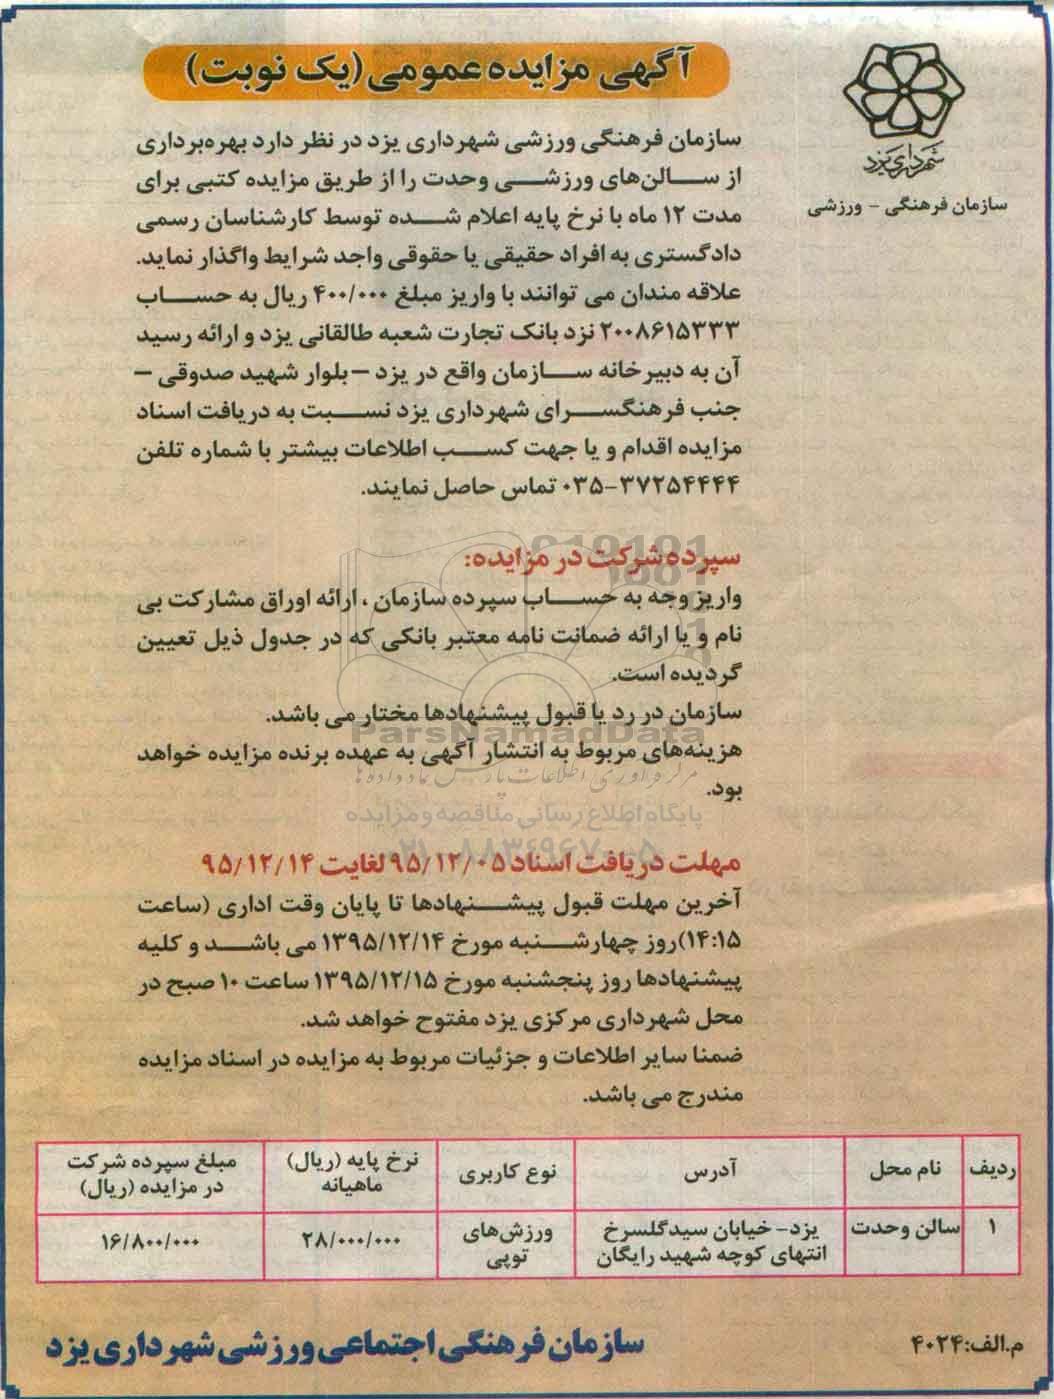 آگهی مزایده عمومی (یک نوبت)
شهرداری یزد
سازمان فرهنگی - ورزشی
سازمان فرهنگی ورزشی شهرداری یزد در نظر دارد بهره‌برداری
از سالن‌های ورزشی وحدت را از طریق مزایده کتبی برای
مدت ۱۲ ماه با نرخ پایه اعلام شده توسط کارشناسان رسمی
دادگستری به افراد حقیقی یا حقوقی واجد شرایط واگذار نماید.
علاقه مندان می توانند با واریز مبلغ ۴۰۰/۰۰۰ ریال به حساب
۲۰۰۸۶۱۵۳۳۳ نزد بانک تجارت شعبه طالقانی یزد و ارائه رسید
آن به دبیرخانه سازمان واقع در یزد – بلوار شهید صدوقی –
جنب فرهنگسرای شهرداری یزد نسبت به دریافت اسناد
مزایده اقدام و یا جهت کسب اطلاعات بیشتر با شماره تلفن
۰۳۵-۳۷۲۵۴۴۴۴ تماس حاصل نمایند.
سپرده شرکت در مزایده:
واریز وجه به حساب سپرده سازمان ، ارائه اوراق مشارکت بی
نام و یا ارائه ضمانت نامه معتبر بانکی که در جدول ذیل تعیین
گردیده است.
سازمان در رد یا قبول پیشنهادها مختار می باشد.
ParsNamadData
هزینه‌های مربوط به انتشار آگهی به عهده برنده مزایده خواهد
بود.
مرکز فرآوری اطلاعات پارس نماد داده ها
پایگاه اطلاع رسانی مناقصه و مزایده
مهلت دریافت اسناد ۹۵/۱۲/۰۵ لغایت ۹۵/۱۲/۱۴
آخرین مهلت قبول پیشنهادها تا پایان وقت اداری (ساعت
۱۴:۱۵) روز چهارشنبه مورخ ۱۳۹۵/۱۲/۱۴ می باشد و کلیه
پیشنهادها روز پنجشنبه مورخ ۱۳۹۵/۱۲/۱۵ ساعت ۱۰ صبح در
محل شهرداری مرکزی یزد مفتوح خواهد شد.
ضمنا سایر اطلاعات و جزئیات مربوط به مزایده در اسناد مزایده
مندرج می باشد.
ردیف نام محل آدرس نوع کاربری نرخ پایه (ریال) ماهیانه مبلغ سپرده شرکت در مزایده (ریال)
۱ سالن وحدت یزد- خیابان سیدگلسرخ انتهای کوچه شهید رایگان ورزش‌های توپی ۲۸/۰۰۰/۰۰۰ ۱۶/۸۰۰/۰۰۰
م.الف: ۴۰۲۴
سازمان فرهنگی اجتماعی ورزشی شهرداری یزد